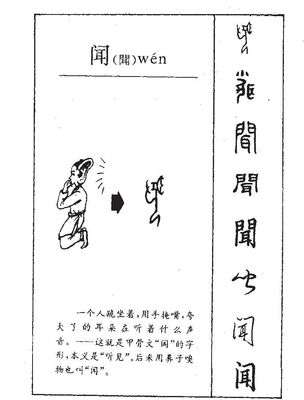 闻(聞)wén
一个人跪坐着,用手掩嘴,夸
大了的耳朵在听着什么声
音。——这就是甲骨文“闻”的字
形,本义是“听见”,后来用鼻子嗅
物也叫“闻”。
聞
聞
聞
闻
闻